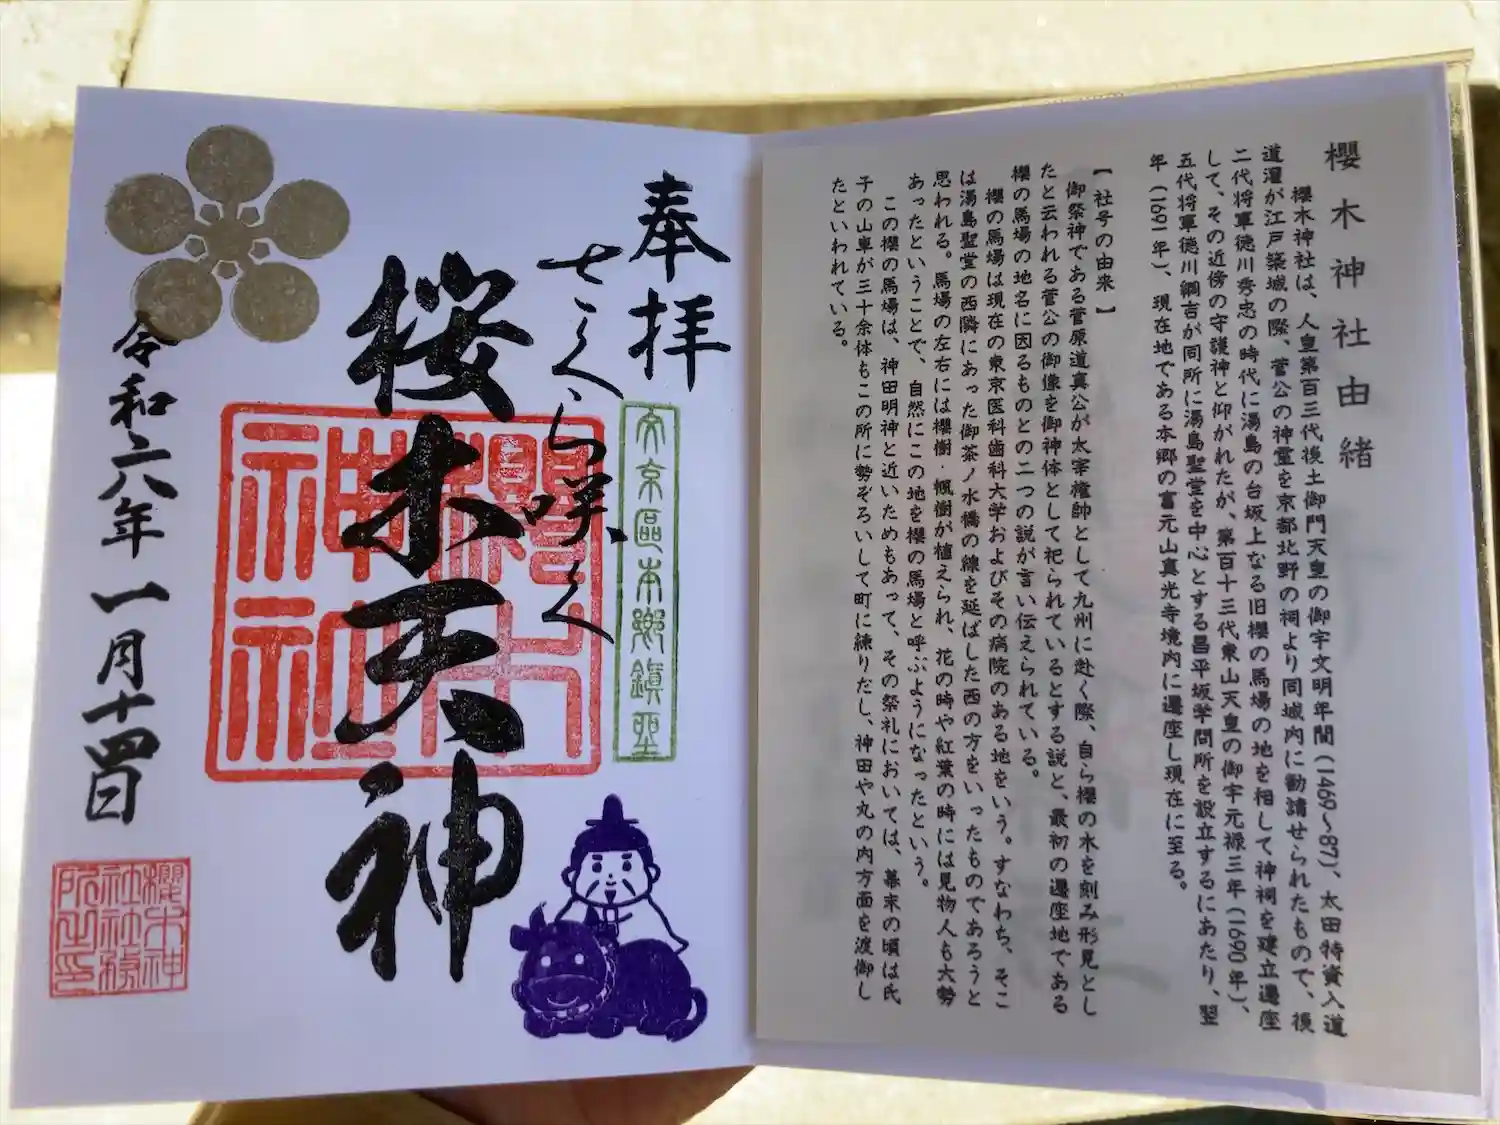 櫻木神社由緒
櫻木神社は、人皇第百三代後土御門天皇の御宇文明年間（1469～87）、太田特資入道
道灌が江戸築城の際、菅公の神霊を京都北野の祠より同城内に勧請せられたもので、後
二代将軍徳川秀忠の時代に湯島の台坂上なる旧櫻の馬場の地を相して神祠を建立遷座
して、その近傍の守護神と仰がれたが、第百十三代東山天皇の御宇元禄三年（1690年）、
五代将軍徳川綱吉が同所に湯島聖堂を中心とする昌平坂学問所を設立するにあたり、翌
年（1691年）、現在地である本郷の富元山真光寺境内に遷座し現在に至る。
【社号の由来】
御祭神である菅原道真公が太宰権帥として九州に赴く際、自ら櫻の木を刻み形見とし
たと云われる菅公の御像を御神体として祀られているとする説と、最初の遷座地である
櫻の馬場の地名に因るものとの二つの説が言い伝えられている。
櫻の馬場は現在の東京医科歯科大学およびその病院のある地をいう。すなわち、そこ
は湯島聖堂の西隣にあった御茶ノ水橋の線を延ばした西の方をいったものであろうと
思われる。馬場の左右には櫻樹・楓樹が植えられ、花の時や紅葉の時には見物人も大勢
あったということで、自然にこの地を櫻の馬場と呼ぶようになったという。
この櫻の馬場は、神田明神と近いためもあって、その祭礼においては、幕末の頃は氏
子の山車が三十余体もこの所に勢ぞろいして町に練りだし、神田や丸の内方面を渡御し
たといわれている。
奉拝
文京區本郷鎮座
さくら咲く
桜木天神
櫻木
神社
令和六年一月十四日
櫻木神
社社務
所之印